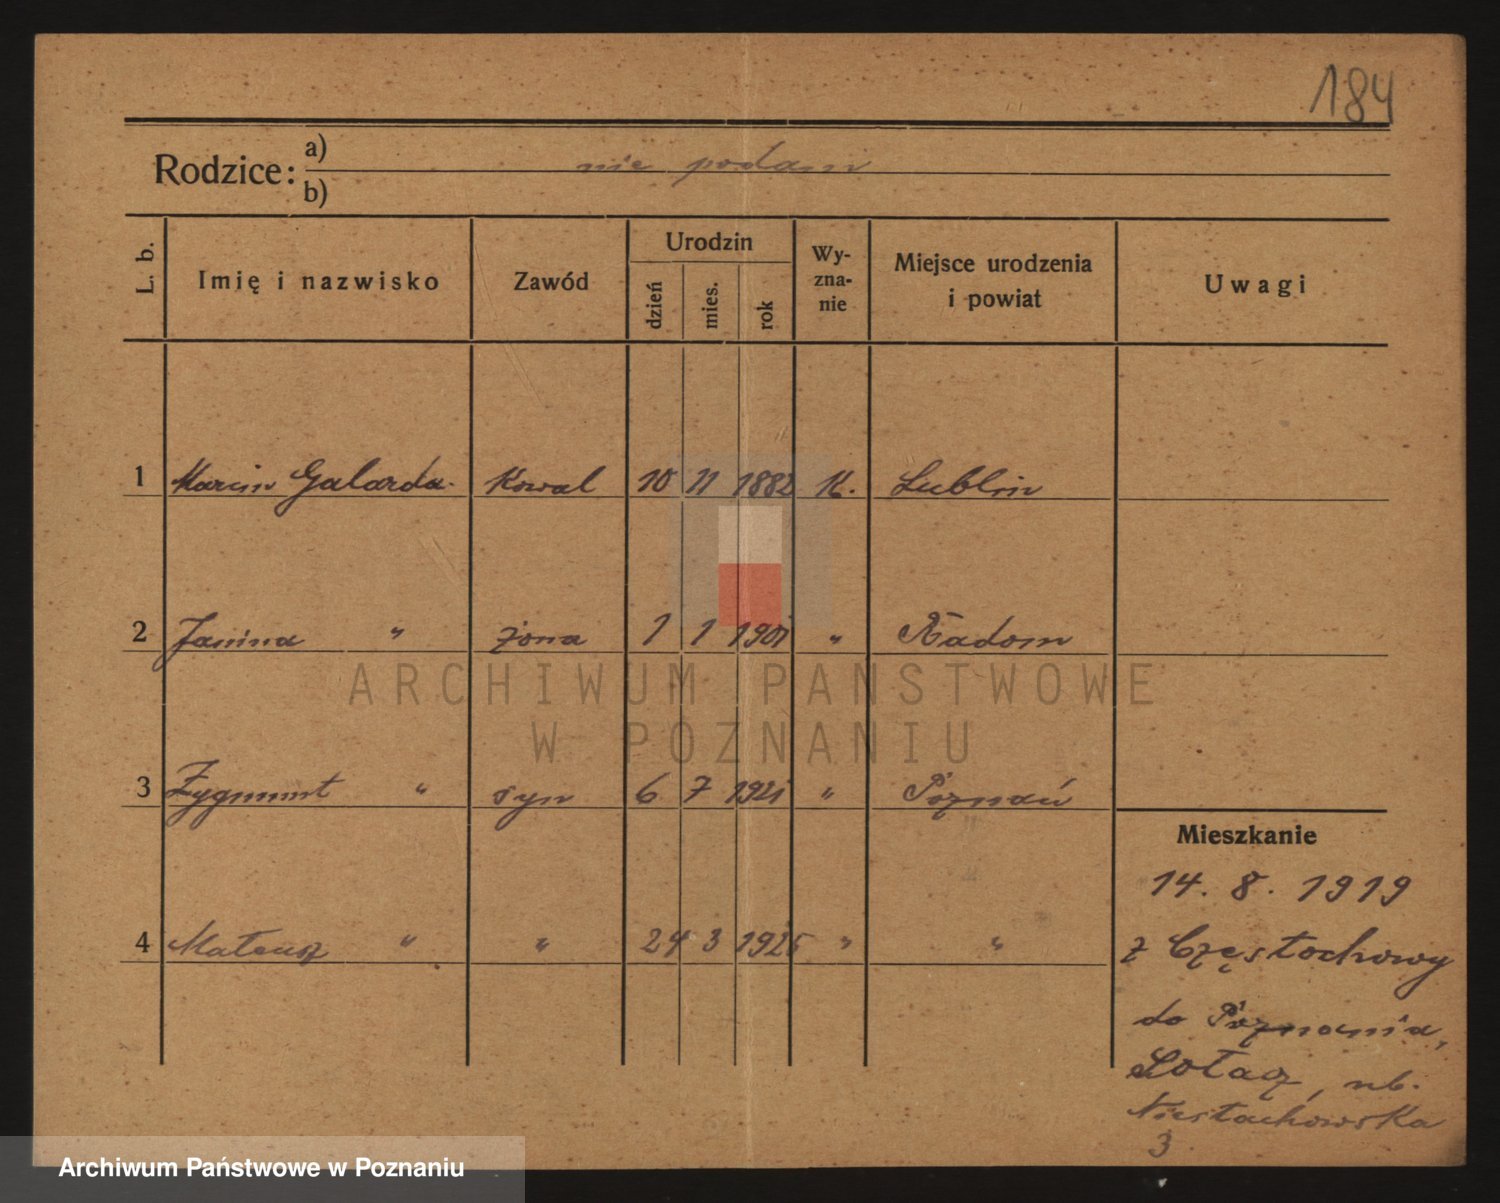 184
Rodzice: a) nie podani
b)
L. b. Imię i nazwisko Zawód Urodzin dzień mies. rok Wy-zna-nie Miejsce urodzenia i powiat Uwagi
1 Marcin Galarda. Kowal 10 11 1882 K. Lublin
2 Janina " żona 1 1 1901 " Radom
3 Zygmunt " syn 6 7 1921 " Poznań
4 Mateusz " " 24 3 1925 " "
Mieszkanie
14. 8. 1919
z Częstochowy
do Poznania,
Sołacz, ul.
Niestachowska
3
ARCHIWUM PAŃSTWOWE
W POZNANIU
Archiwum Państwowe w Poznaniu